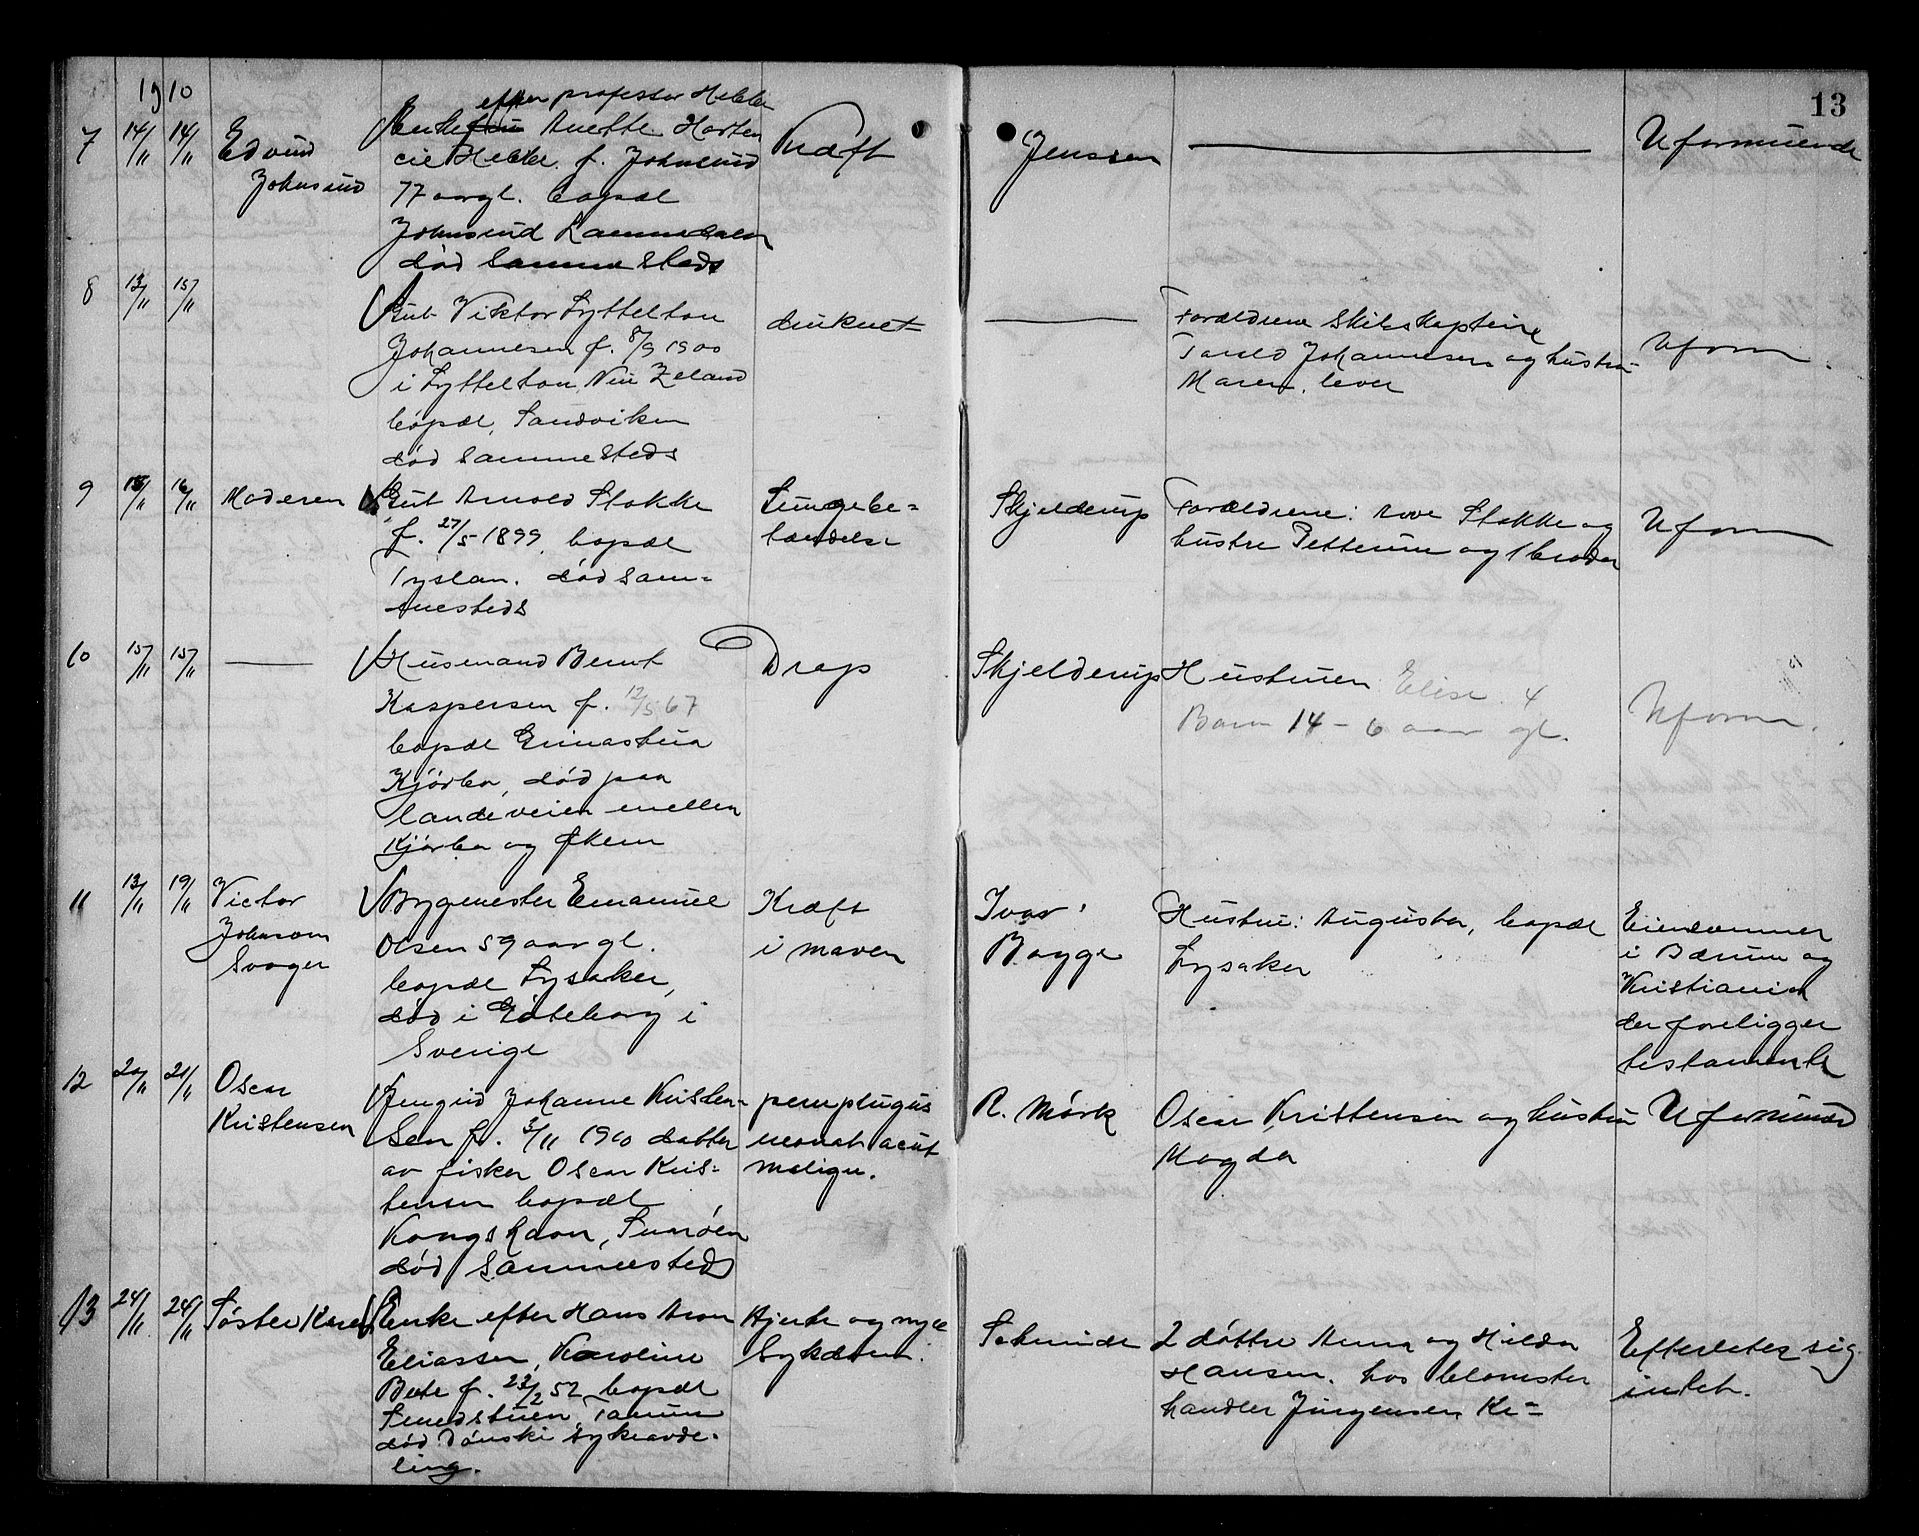 13
1910
7 14/11 14/11 Edvind
Johnsrud
efter professor
Enkefru Anette Horten
cie f. Johnsrud
77 aar gl. bopæl
Johnsrud Lommedalen
død sammesteds
Kræft
Jenssen
Uformuende
8 13/11 15/11
Gut Viktor Lyttelton
Johannesen f. 8/9 1900
i Lyttelton Niu Zeland
bopæl, Sandviken
død sammesteds
druknet
Forældrene Skibskaptein
Johannesen og hustru
Maren, lever
Uform
9 15/11 16/11 Moderen
Gut Arnold Stokke
f. 27/5 1899, bopæl
død sam-
mesteds
Lungebe-
tændelse
Skjelderup
Forældrene: Stokke og
hustru Petterine og 1 broder
Uform
10 15/11 15/11
Husmand Bernt
Kaspersen f. 12/5 67
bopæl
Kjørbo, død paa
landeveien mellem
Kjørbo og
Drap
Skjelderup
Hustruen Elise 4
Barn 14 - 6 aar gl.
Uform.
11 13/11 19/11 Victor
Johnsom
Svoger
Bygmester Emanuel
Olsen 59 aar gl.
bopæl Lysaker,
død i Göteborg i
Sverige
Kræft
i maven
Ivar
Bagge
Hustru: Augusta, bopæl
Lysaker
Eiendommer
i Bærum og
Kristiania
der foreligger
testamente
12 20/11 21/11 Oscar
Kristensen
Johanne Kristen-
sen f. 3/11 1910 datter
av fisker Oscar Kris-
tensen bopæl
Kongshavn,
død sammesteds
pemphigus
neonat acut
malign.
R. Mörk
Oscar Kristensen og hustru
Magda
Uformuende
13 24/11 24/11 Søster
Enke efter Hans Aron
Eliassen, Karoline
Berte f. 23/2 52 bopæl
Smedstuen, Tanum
død Dønski sykeavde-
ling.
Hjerte og nyre
sykdom.
2 døttre Anna og Hilda
Hansen. hos blomster
handler Jürgensen Kr-
Efterlater sig
intet.